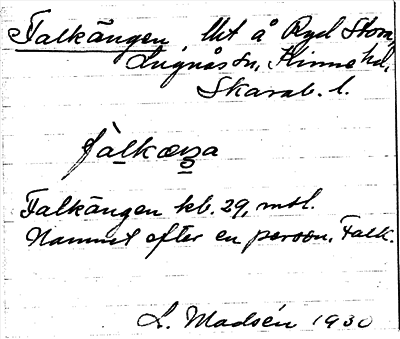 Falkängen Mt å Ryd Stora,
Lugnås sn, Kinne hd,
Skarab. l.
fàlkæŋa
Falkängen kb. 29, msl.
Namnet efter en person. Falk.
L. Madsén 1930